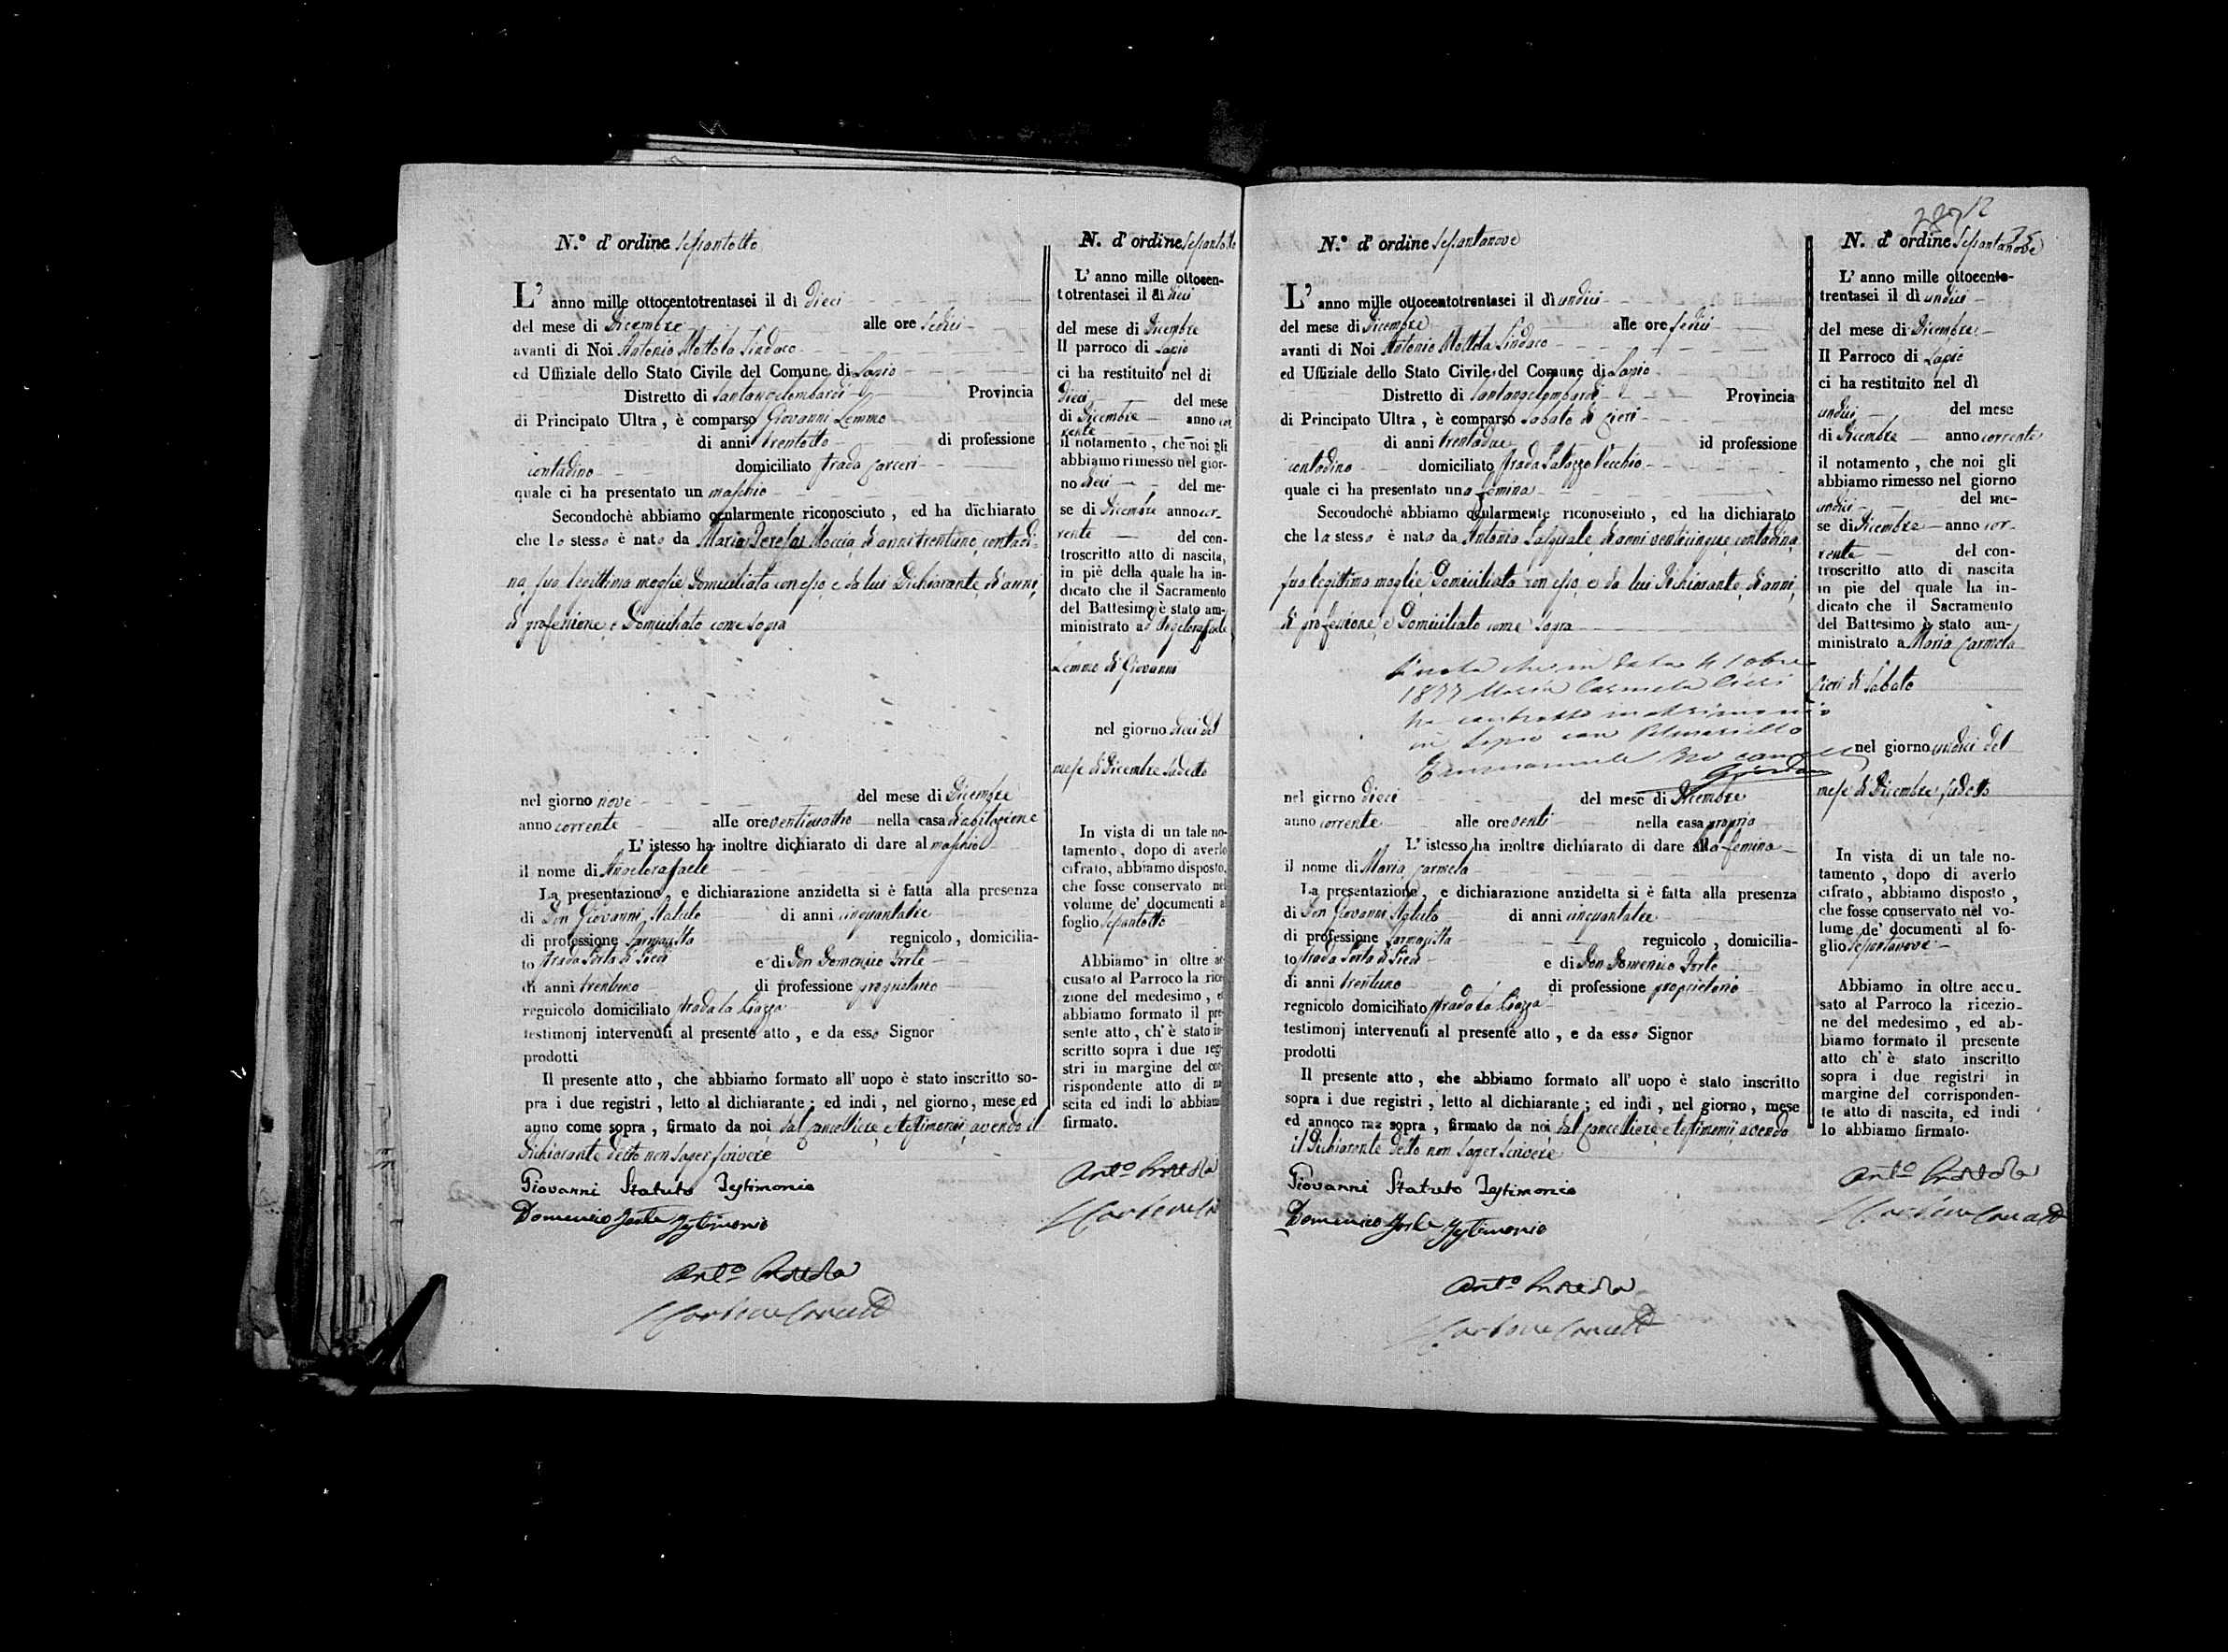 N.° d' ordine Settantotto
L' anno mille ottocentotrentasei il dì dieci
del mese di Dicembre alle ore sedici
avanti di Noi Antonio Mottola Sindaco
ed Uffiziale dello Stato Civile del Comune di Lapio
Distretto di Santangelombardi Provincia
di Principato Ultra , è comparso Giovanni Lemmo
di anni trentotto di professione
contadino domiciliato strada Carceri
quale ci ha presentato un maschio
Secondochè abbiamo ocularmente riconosciuto , ed ha dichiarato
che lo stesso è nato da Maria Teresa Moccia, di anni trentuno, contadi-
na, sua legittima moglie, Domiciliata con esso, e da lui Dichiarante, di anni,
di professione, e Domiciliato come sopra
nel giorno nove del mese di Dicembre
anno corrente alle ore ventiquattro nella casa d'abitazione
L' istesso ha inoltre dichiarato di dare al maschio
il nome di Angelorafaele
La presentazione, e dichiarazione anzidetta si è fatta alla presenza
di Don Giovanni Statuto di anni cinquantatre
di professione Farmacista regnicolo , domicilia-
to strada Porta di Piedi e di Don Domenico Forte
di anni trentuno di professione proprietario
regnicolo domiciliato strada la Piazza
testimonj intervenuti al presente atto , e da esso Signor
prodotti
Il presente atto , che abbiamo formato all' uopo è stato inscritto so-
pra i due registri , letto al dichiarante ; ed indi , nel giorno, mese ed
anno come sopra , firmato da noi, dal Cancelliere, e testimonii, avendo il
Dichiarante detto non saper scrivere
Giovanni Statuto Testimonio
Domenico Forte Testimonio
Ant.o Mottola
N. d' ordine Settantotto
L' anno mille ottocen-
totrentasei il dì dieci
del mese di Dicembre
Il parroco di Lapio
ci ha restituito nel di
dieci del mese
di Dicembre anno cor
rente
il notamento , che noi gli
abbiamo rimesso nel gior-
no dieci del me-
se di Dicembre anno cor-
rente del con-
troscritto atto di nascita,
in piè della quale ha in-
dicato che il Sacramento
del Battesimo è stato am-
ministrato ad Angelorafaele
Lemmo di Giovanni
nel giorno dieci del
mese di Dicembre sudetto
In vista di un tale no-
tamento , dopo di averlo
cifrato, abbiamo disposto,
che fosse conservato nel
volume de' documenti a
foglio Settantotto
Abbiamo in oltre ac
cusato al Parroco la rice
zione del medesimo , e
abbiamo formato il pre
sente atto , ch' è stato in
scritto sopra i due regi
stri in margine del cor
rispondente atto di na
scita ed indi lo abbiam
firmato.
Ant.o Mottola
N.° d' ordine Settantanove
L' anno mille ottocentotrentasei il dì undici
del mese di Dicembre alle ore sedici
avanti di Noi Antonio Mottola Sindaco
ed Uffiziale dello Stato Civile del Comune di Lapio
Distretto di Santangelombardi Provincia
di Principato Ultra , è comparso Sabato di Cieri
di anni trentadue id professione
contadino domiciliato strada Palazzo Vecchio
quale ci ha presentato una femina
Secondochè abbiamo ocularmente riconosciuto , ed ha dichiarato
che la stessa è nata da Antonia Pasquale, di anni venticinque, contadina,
sua legittima moglie, Domiciliata con esso, e da lui Dichiarante, di anni,
di professione, e Domiciliato come sopra
Si nota che in data 4 10bre
1877 Maria Carmela Cieri
ha contratto matrimonio
in Lapio con
nel giorno dieci del mese di Dicembre
anno corrente alle ore venti nella casa propria
L' istesso ha inoltre dichiarato di dare alla femina
il nome di Maria Carmela
La presentazione, e dichiarazione anzidetta si è fatta alla presenza
di Don Giovanni Statuto di anni cinquantatre
di professione Farmacista regnicolo , domicilia-
to strada Porta di Piedi e di Don Domenico Forte
di anni trentuno di professione proprietario
regnicolo domiciliato strada la Piazza
testimonj intervenuti al presente atto , e da esso Signor
prodotti
Il presente atto , che abbiamo formato all' uopo è stato inscritto
sopra i due registri , letto al dichiarante ; ed indi , nel giorno , mese
ed annoco me sopra , firmato da noi dal Cancelliere, e testimonii, avendo
il Dichiarante detto non saper scrivere
Giovanni Statuto Testimonio
Domenico Forte Testimonio
Ant.o Mottola
N. d' ordine Settantanove
L' anno mille ottocento-
trentasei il dì undici
del mese di Dicembre
Il Parroco di Lapio
ci ha restituito nel dì
undici del mese
di Dicembre anno corrente
il notamento , che noi gli
abbiamo rimesso nel giorno
undici del me-
se di Dicembre anno cor-
rente del con-
troscritto atto di nascita
in pie del quale ha in-
dicato che il Sacramento
del Battesimo è stato am-
ministrato a Maria Carmela
Cieri di Sabato
nel giorno undici del
mese di Dicembre sudetto
In vista di un tale no-
tamento , dopo di averlo
cifrato , abbiamo disposto ,
che fosse conservato nel vo-
lume de' documenti al fo-
glio Settantanove
Abbiamo in oltre accu-
sato al Parroco la ricezio-
ne del medesimo , ed ab-
biamo formato il presente
atto ch' è stato inscritto
sopra i due registri in
margine del corrisponden-
te atto di nascita, ed indi
lo abbiamo firmato.
Ant.o Mottola